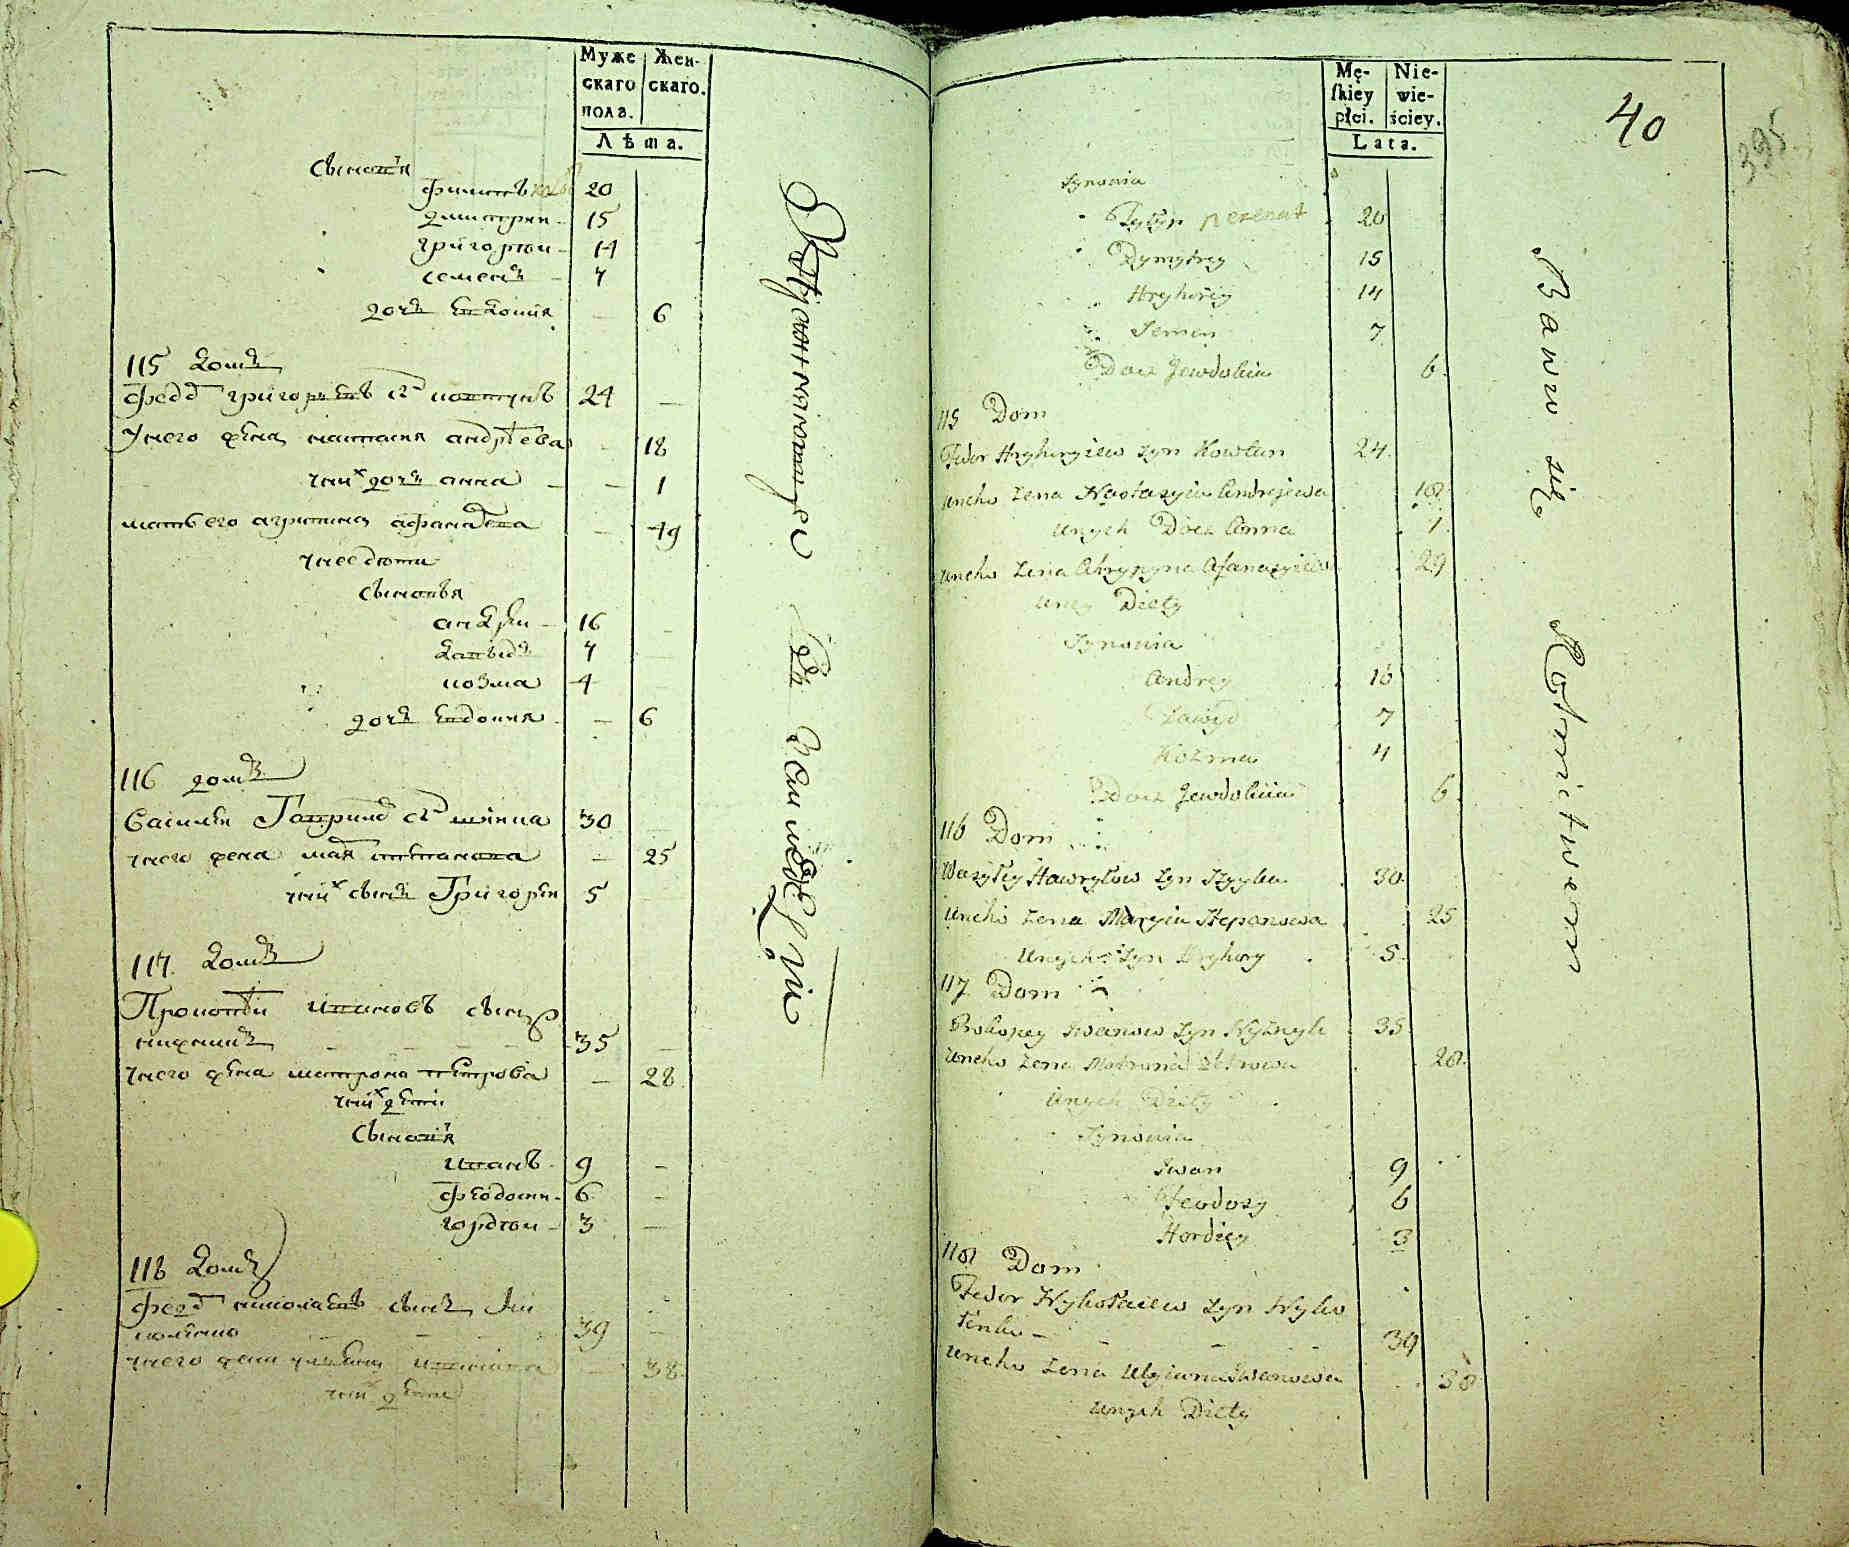 Муже
скаго
пола.
Жен-
скаго.
Лѣта.
Сыновья
Филипъ 20
Дмитреи 15
Григореи 14
Семенъ 7
дочь Евдокия 6
115 домъ
Федоръ Григорьевъ сынъ Ковтунъ 24
У него жена Настасия Андрѣева 18
у них дочь Анна 1
Мать его Агрипина Афанасьева 49
у нее дети
Сыновья
Андреи 16
Давыдъ 7
Козма 4
дочь Евдокия 6
116 домъ
Василеи Гаврилов сынъ 30
у него жена Мария Степанова 25
у них сынъ Григореи 5
117 домъ
Прокофеи Ивановъ сынъ
35
у него жена Матрона Петрова 28
у них дети
Сыновья
Иванъ 9
Феодосии 6
Гордеи 3
118 домъ
Федоръ Николаевъ сынъ Ни
коленко 39
у него жена Ульяна Иванова 38
у них дети
Mę-
skiey
płci.
Nie-
wie-
ściey.
Lata.
40
395
Synowia
20
Dymytrey 15
Hryhorey 14
Semen 7
Docz Jewdokia 6
115 Dom
Fedor Hryhoryiew syn Kowtun 24
uneho Zena Nastazyia Andrejewa 18
unych Docz Anna 1
uneho Zena Ahrypyna Afanasyiewa 29
uney Diety
Synowia
Andrey 16
Dawyd 7
Kozma 4
Docz Jewdokiia 6
116 Dom
Wasyley Hawryłow syn 30
uneho Zena Maryia Stepanowa 25
unych Syn Hryhory 5
117 Dom
Prokopey Iwanow syn 35
uneho Zena Motruna Petrowa 28
unych Diety
Synowia
Iwan 9
Feodosy 6
Hordiey 3
118 Dom
Fedor Nykołaiew syn Nyko
łenko 39
uneho Zena Ulyiana Iwanowa 38
unych Diety
Bawio się Rolnictwem